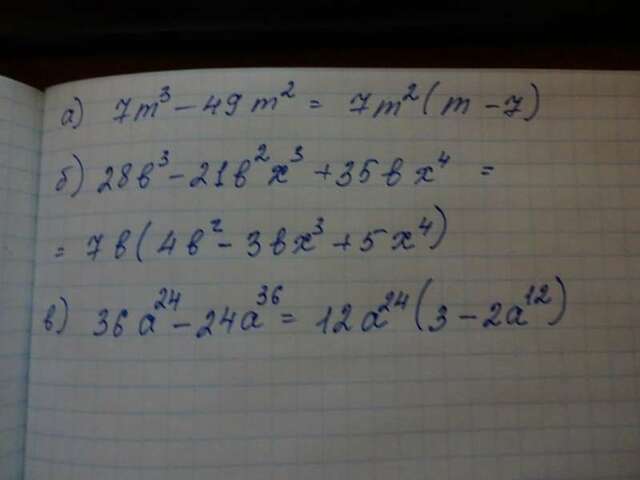 а) 7m³ – 49m² = 7m²(m – 7)
б) 28b³ – 21b²x³ + 35bx⁴ =
= 7b(4b² – 3bx³ + 5x⁴)
в) 36a²⁴ – 24a³⁶ = 12a²⁴(3 – 2a¹²)